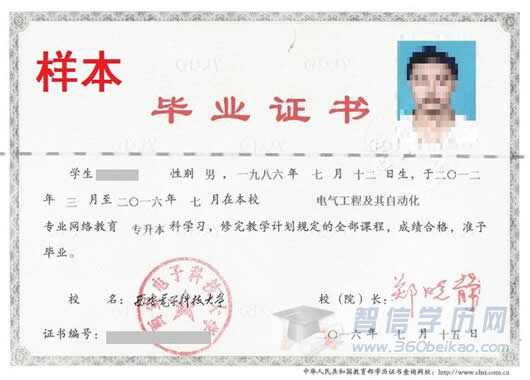 样本
毕业证书
学生 性别 男，一九八六年 七月 十二日生，于二〇一二
年 三 月至二〇一六年 七 月在本校 电气工程及其自动化
专业网络教育 专升本 科学习，修完教学计划规定的全部课程，成绩合格，准予
毕业。
校 名：西安电子科技大学 校（院）长：郑晓静
证书编号： 二〇一六年 七月 十五日
智信学历网
www.360beikao.com
中华人民共和国教育部学历证书查询网址：http://www.chsi.com.cn